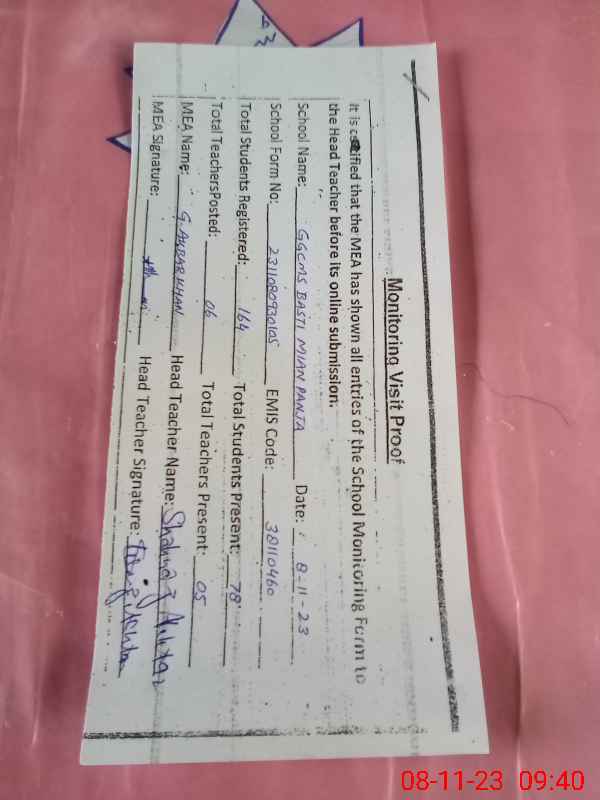 Monitoring Visit Proof
It is certified that the MEA has shown all entries of the School Monitoring Form to
the Head Teacher before its online submission.
School Name: GGCMS BASTI MIAN PANJA Date: 8-11-23
School Form No: 2311080930105 EMIS Code: 38110460
Total Students Registered: 164 Total Students Present: 78
Total TeachersPosted: 06 Total Teachers Present: 05
MEA Name: G. AKBAR KHAN Head Teacher Name: Shahnaz Akhtar
MEA Signature: Head Teacher Signature:
08-11-23 09:40